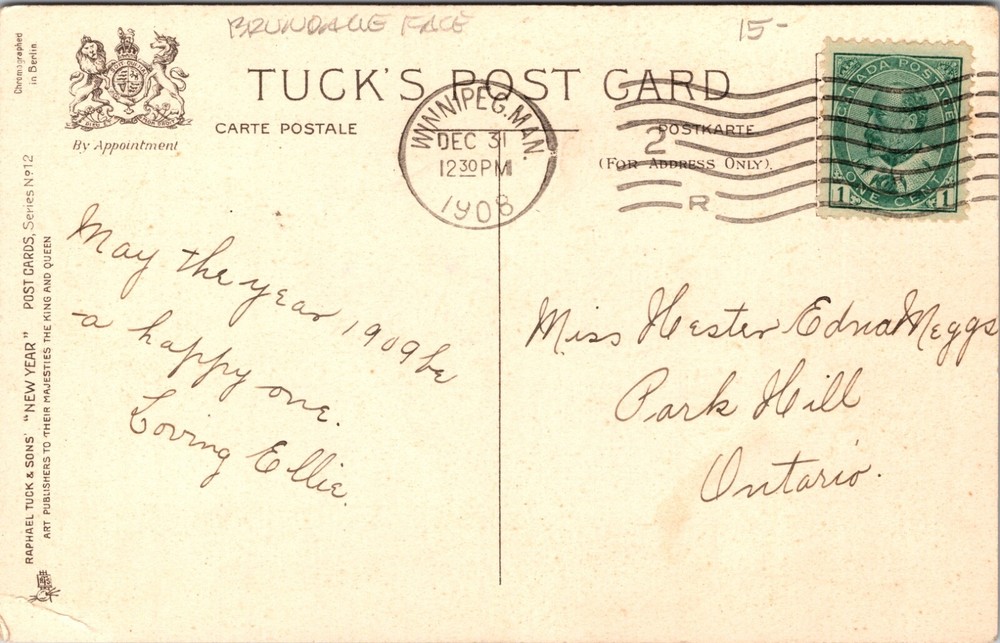 BRUNDAGE FACE
15-
Chromographed
in Berlin
By Appointment
TUCK'S POST CARD
CARTE POSTALE
POSTKARTE
(FOR ADDRESS ONLY).
WINNIPEG. MAN.
DEC 31
12 30 PM
1908
2
R
CANADA POSTAGE
ONE CENT
1 1
RAPHAEL TUCK & SONS' "NEW YEAR" POST CARDS, Series Nº 12
ART PUBLISHERS TO THEIR MAJESTIES THE KING AND QUEEN
May the year 1909 be
a happy one.
Loving Ellie.
Miss Hester Edna Meggs
Park Hill
Ontario.